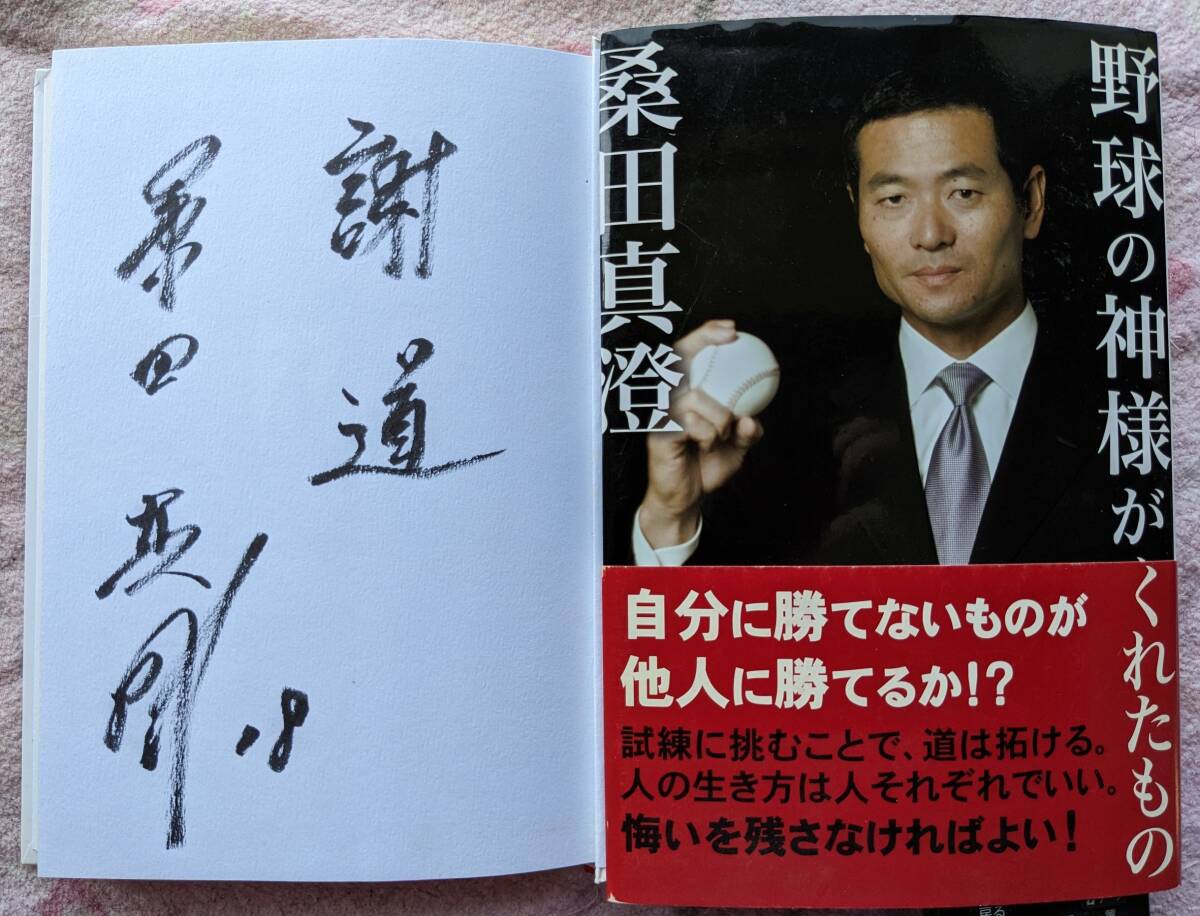 謝道
桑田真澄
.18
野球の神様がくれたもの
桑田真澄
自分に勝てないものが
他人に勝てるか!?
試練に挑むことで、道は拓ける。
人の生き方は人それぞれでいい。
悔いを残さなければよい!